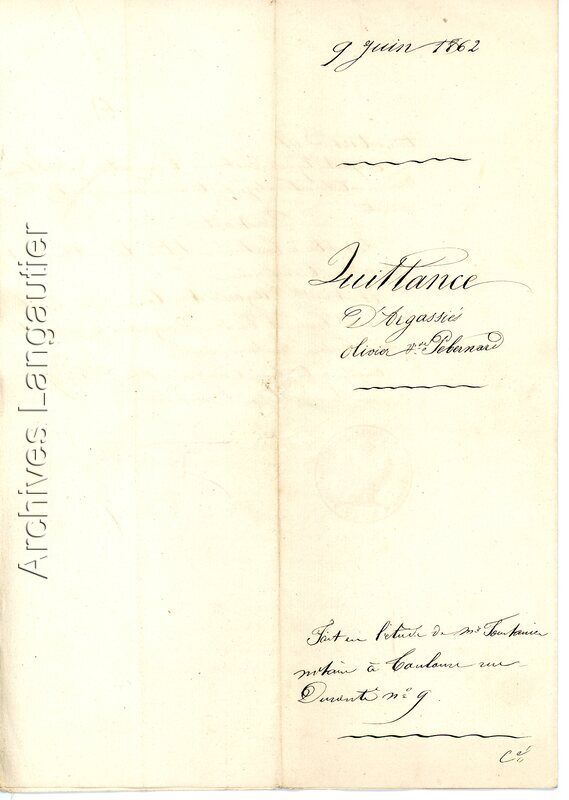 Archives Langautier
9 juin 1862
Quittance
D'Argassiés
Olivier née Pebernard
Fait en l'étude de Me Fourtanier
notaire à Toulouse rue
Duranti no 9.